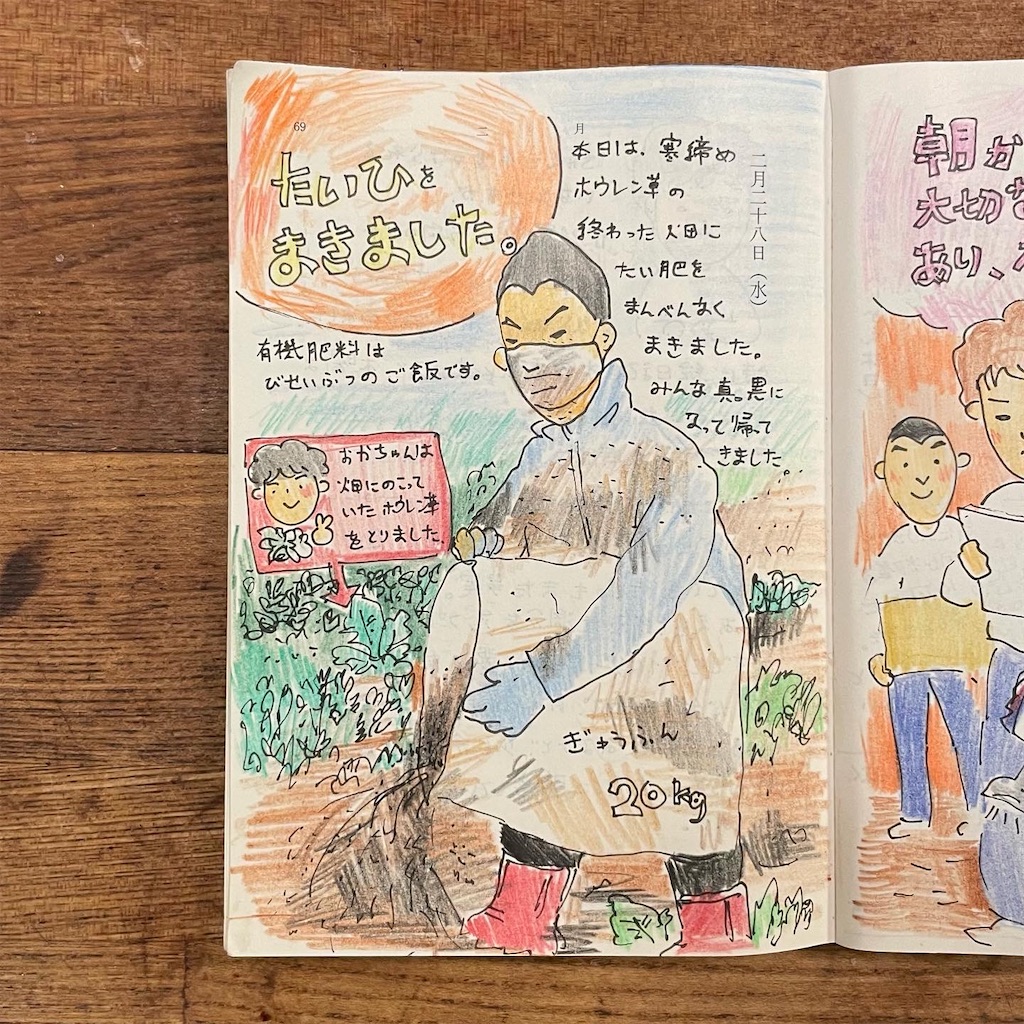 69
二
月
二月二十八日（水）
たいひを
まきました。
本日は、寒締め
ホウレン草の
終わった畑に
たい肥を
まんべんなく
まきました。
みんな真っ黒に
なって帰って
きました。
有機肥料は
びせいぶつのご飯です。
おかちゃんは
畑にのこって
いたホウレン草
をとりました。
ぎゅうふん
20kg
朝か
大切な
あり、